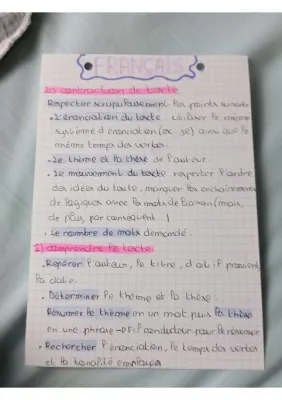 FRANÇAIS
La contraction de texte
Respecter scrupuleusement les points suivants
• L'énonciation du texte : utiliser le même
système d'énonciation (ex : je) ainsi que le
même temps des verbes.
• Le thème et la thèse de l'auteur.
• Le mouvement du texte : respecter l'ordre
des idées du texte, marquer les enchaînements
de logiques avec les mots de liaison (mais,
de plus, par conséquent...)
• Le nombre de mots demandé.
I) comprendre le texte
• Repérer l'auteur, le titre, d'où il provient
la date.
• Déterminer le thème et la thèse :
Résumer le thème en un mot puis la thèse
en une phrase → fil conducteur pour le résumer
• Rechercher l'énonciation, le temps des verbes
et la tonalité employés